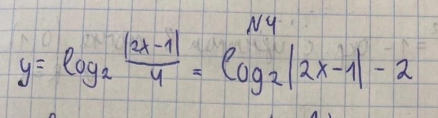 N4
y = log₂ |2x-1|/4 = log₂|2x-1| - 2